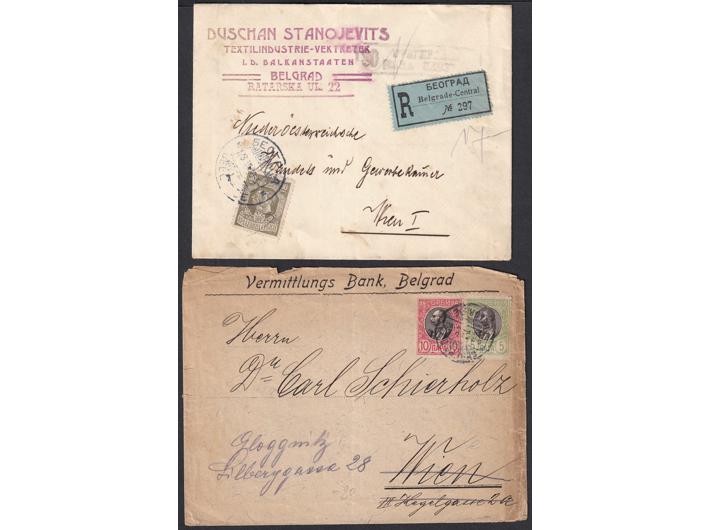 DUSCHAN STANOJEVITS
TEXTILINDUSTRIE-VERTRETER
I. D. BALKANSTAATEN
BELGRAD
RATARSKA UL. 22
R
БЕОГРАД
Belgrade-Central
№ 297
17-
Niederösterreichische
Handels und Gewerbekamer
Wien I
БЕОГРАД
Vermittlungs Bank, Belgrad
Herrn
Dr Carl Schierholz
10 10
5
Gloggnitz
Silberggasse 28
Wien
III Hegelgasse 2a